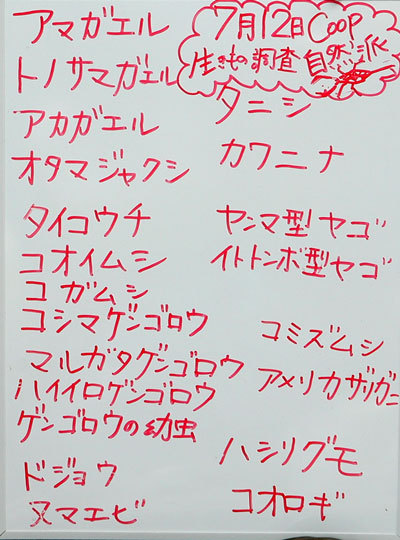 7月12日 COOP
生きもの調査 自然派
アマガエル
トノサマガエル
アカガエル
オタマジャクシ
タイコウチ
コオイムシ
コガムシ
コシマゲンゴロウ
マルガタゲンゴロウ
ハイイロゲンゴロウ
ゲンゴロウの幼虫
ドジョウ
ヌマエビ
タニシ
カワニナ
ヤンマ型ヤゴ
イトトンボ型ヤゴ
コミズムシ
アメリカザリガニ
ハシリグモ
コオロギ